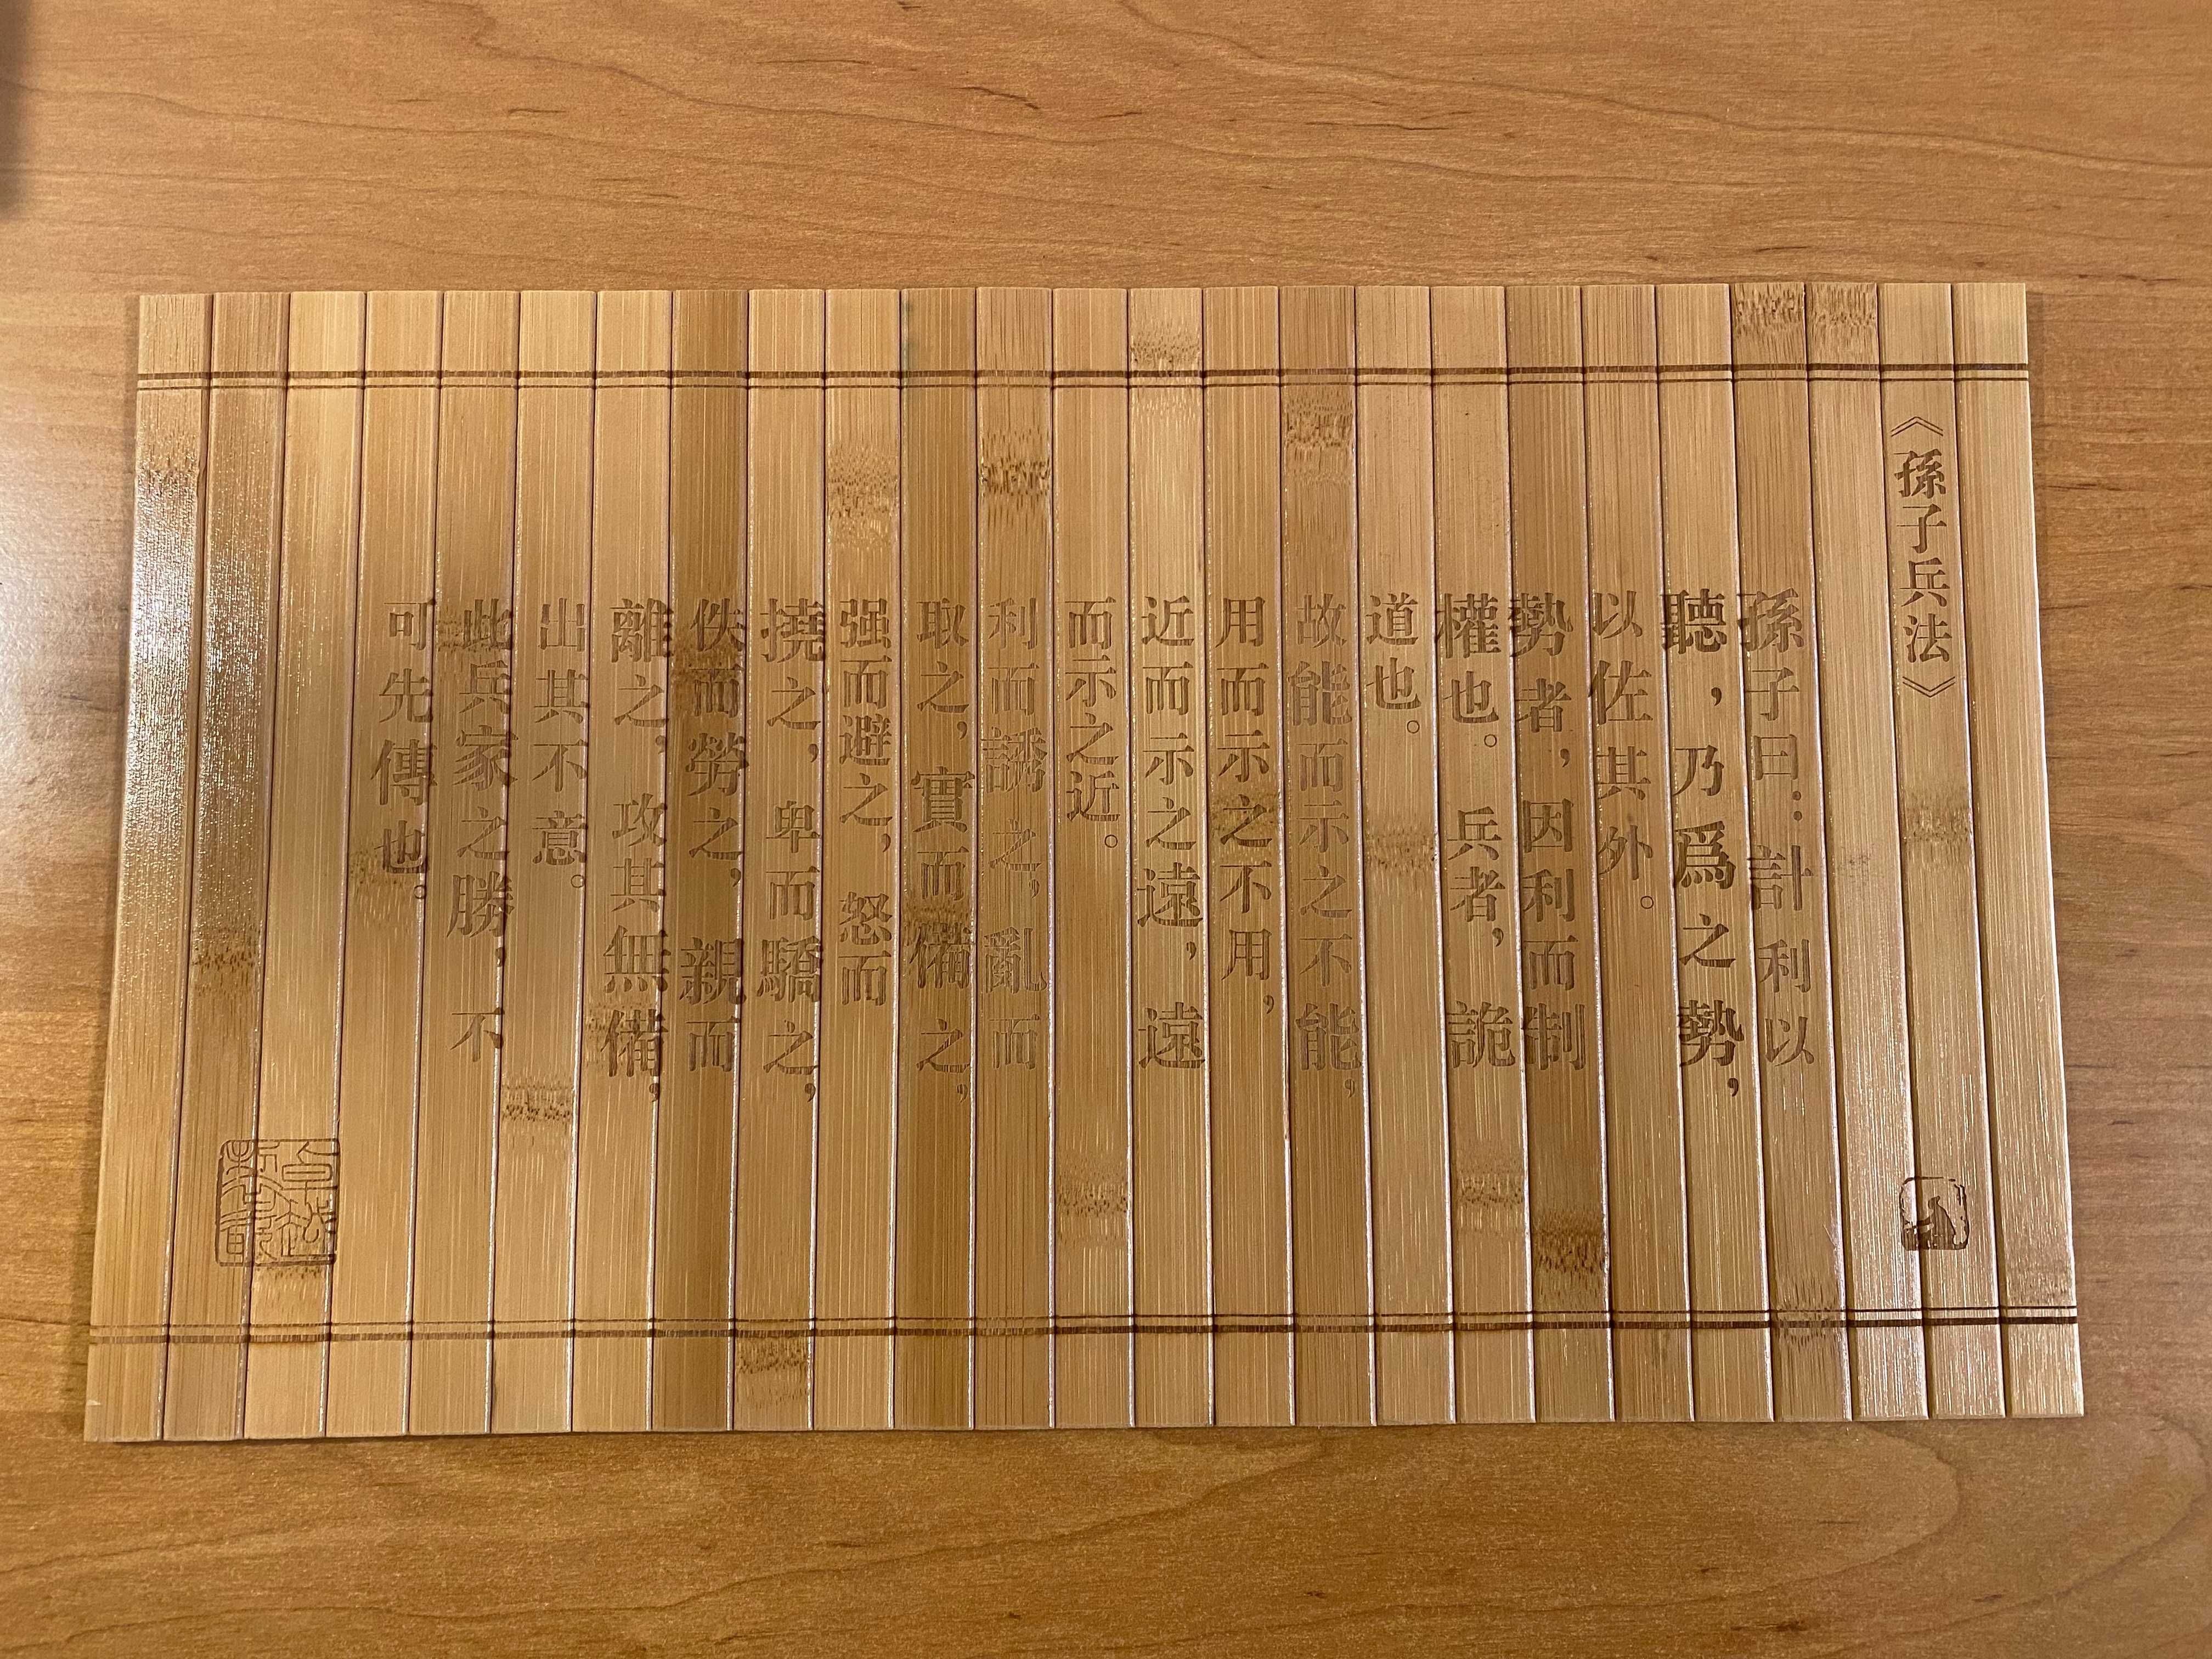 《孫子兵法》
孫子曰：計利以
聽，乃爲之勢，
以佐其外。
勢者，因利而制
權也。兵者，詭
道也。
故能而示之不能，
用而示之不用，
近而示之遠，遠
而示之近。
利而誘之，亂而
取之，實而備之，
强而避之，怒而
撓之，卑而驕之，
佚而勞之，親而
離之，攻其無備，
出其不意。
此兵家之勝，不
可先傳也。